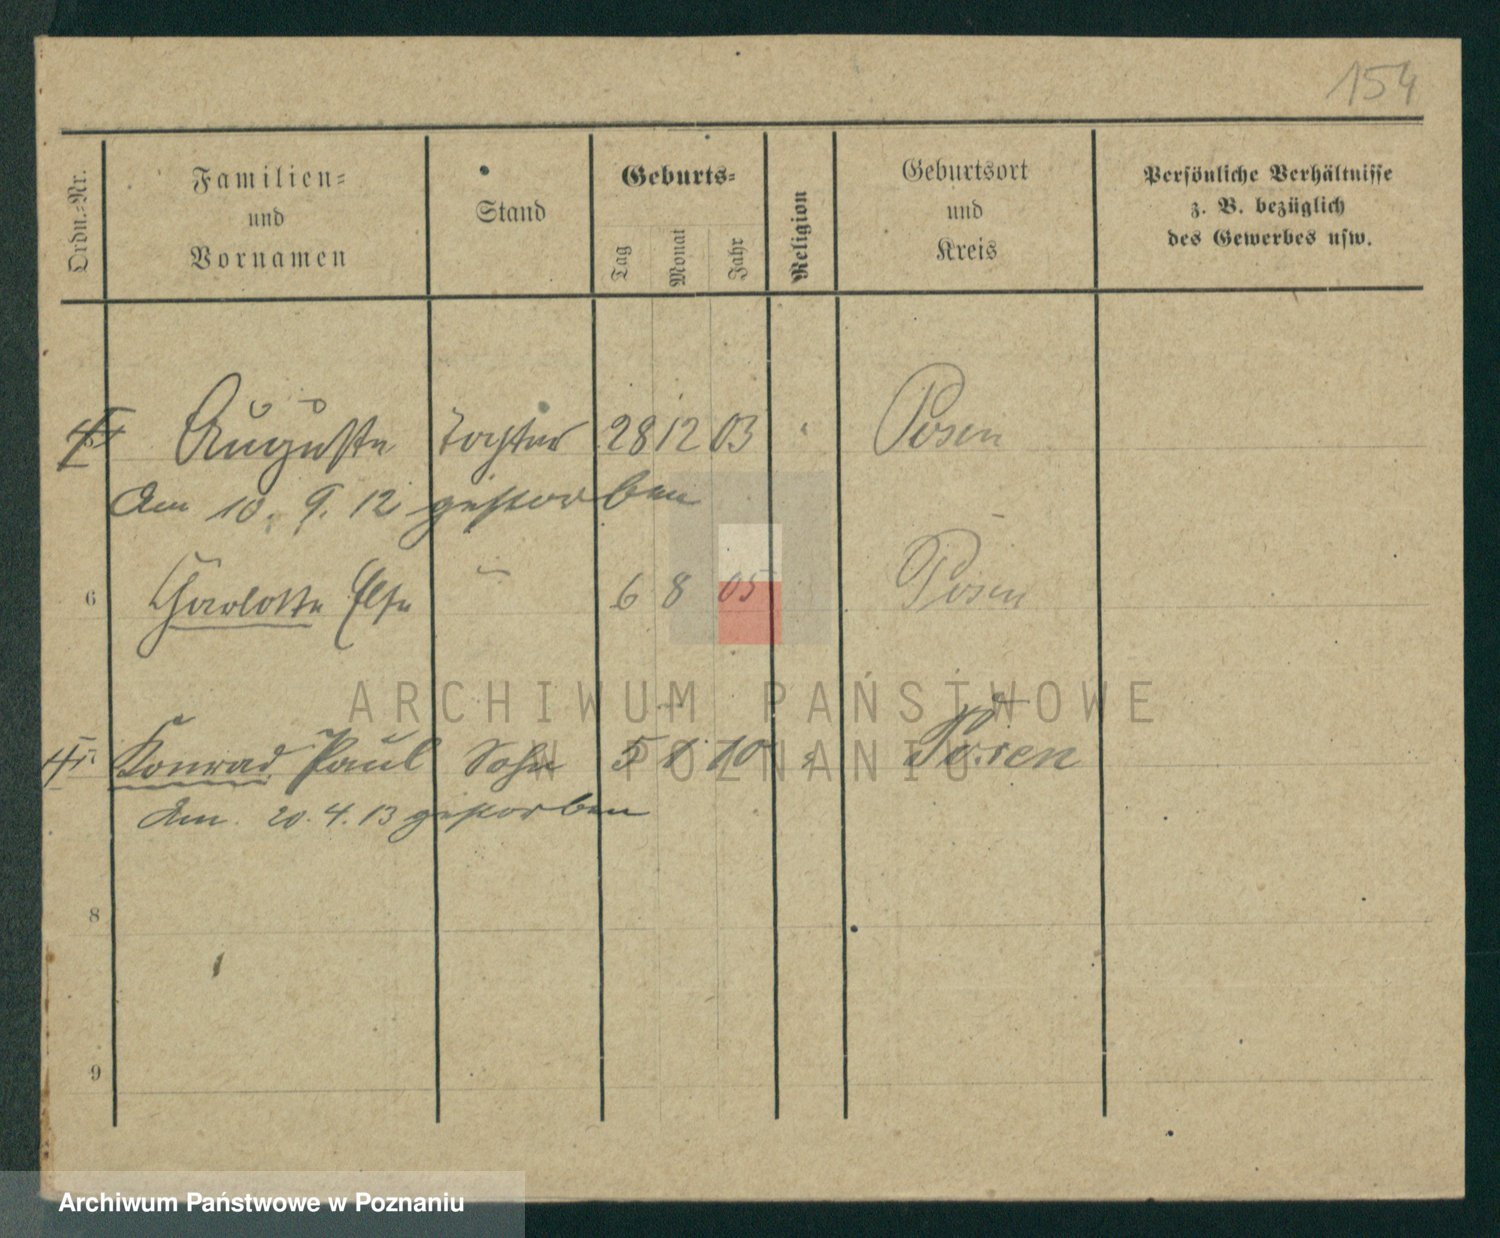 154
Ordn.-Nr.
Familien-
und
Vornamen
Stand
Geburts-
Tag
Monat
Jahr
Religion
Geburtsort
und
Kreis
Persönliche Verhältnisse
z. B. bezüglich
des Gewerbes usw.
Auguste Tochter 28 12 03 Posen
Am 10. 9. 12 gestorben
6 Charlotte Else 6 8 05 Posen
Konrad Paul Sohn 5 1 10 Posen
Am 20. 4. 13 gestorben
8
9
ARCHIWUM PAŃSTWOWE
W POZNANIU
Archiwum Państwowe w Poznaniu